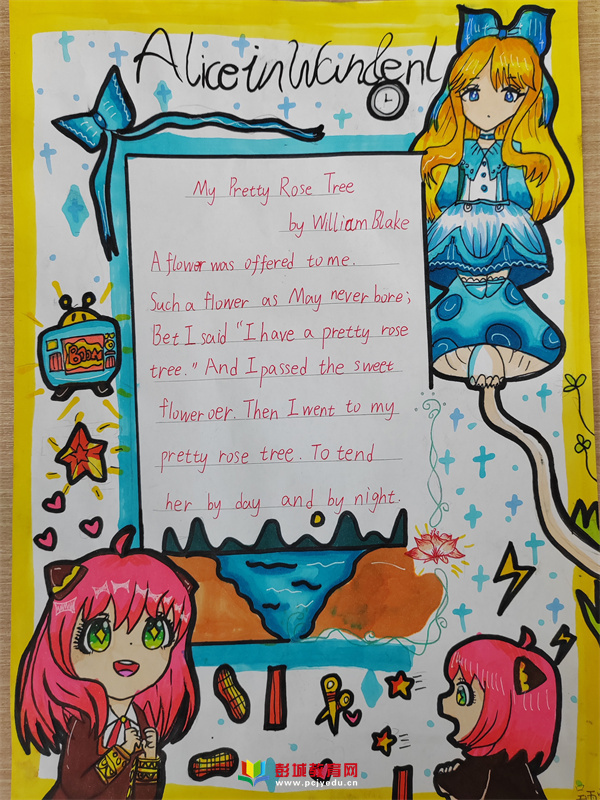 Alice in Wanderl
My Pretty Rose Tree
by William Blake
A flower was offered to me.
Such a flower as May never bore;
Bet I said "I have a pretty rose
tree." And I passed the sweet
flower oer. Then I went to my
pretty rose tree. To tend
her by day and by night.
BOOM
彭城教育网
www.pcjyedu.cn